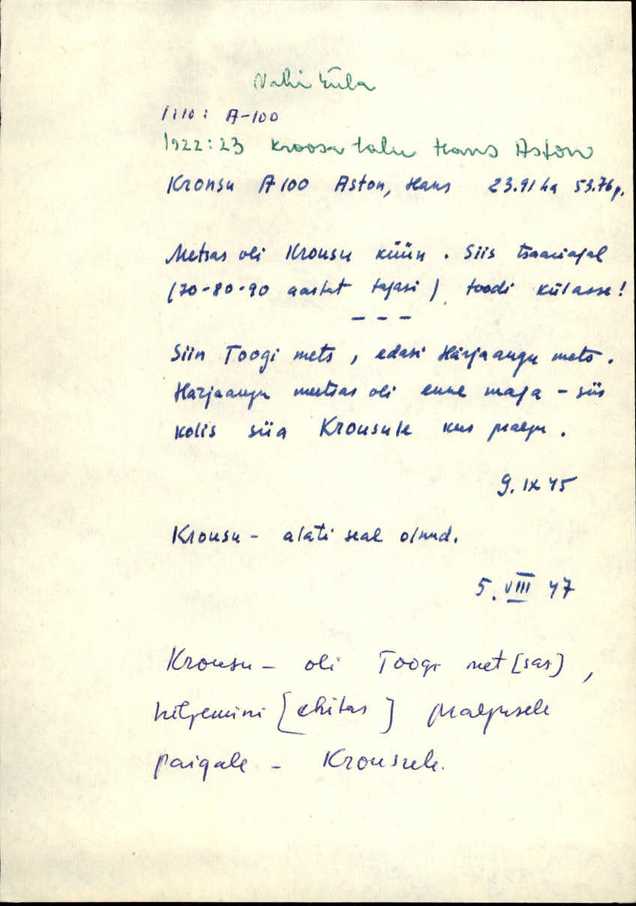 Vahi küla
1:10: A-100
1922:23 Kroosu talu Hans Aston
Kronsu A 100 Aston, Hans 23.91 ha 53.76 p.
Metsas oli Krousu küün. Siis tsaariajal
(70-80-90 aastat tagasi) toodi külasse!
- - -
Siin Toogi mets, edasi Härjaangu mets.
Härjaangu metsas oli enne maja - siis
kolis siia Krousule kus praegu.
9. IX 45
Krousu - alati seal olnud.
5. VIII 47
Krousu - oli Toogi met[sas],
hiljemini [ehitas] praegusele
paigale - Krousule.